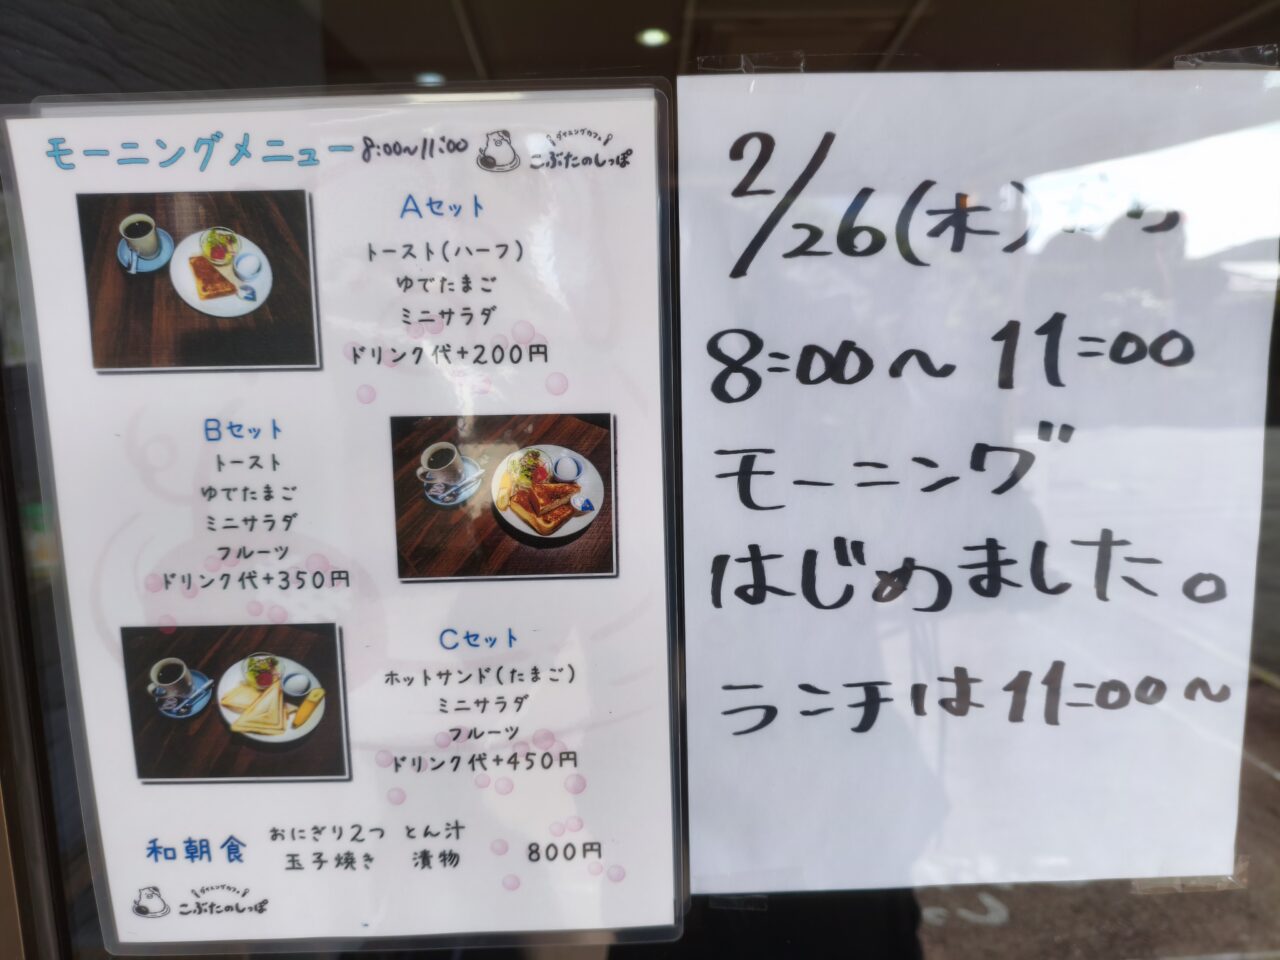 モーニングメニュー 8:00~11:00
ダイニングカフェ
こぶたのしっぽ
Aセット
トースト(ハーフ)
ゆでたまご
ミニサラダ
ドリンク代+200円
Bセット
トースト
ゆでたまご
ミニサラダ
フルーツ
ドリンク代+350円
Cセット
ホットサンド(たまご)
ミニサラダ
フルーツ
ドリンク代+450円
和朝食 おにぎり2つ とん汁
玉子焼き 漬物 800円
ダイニングカフェ
こぶたのしっぽ
2/26(木)から
8:00~11:00
モーニング
はじめました。
ランチは11:00~